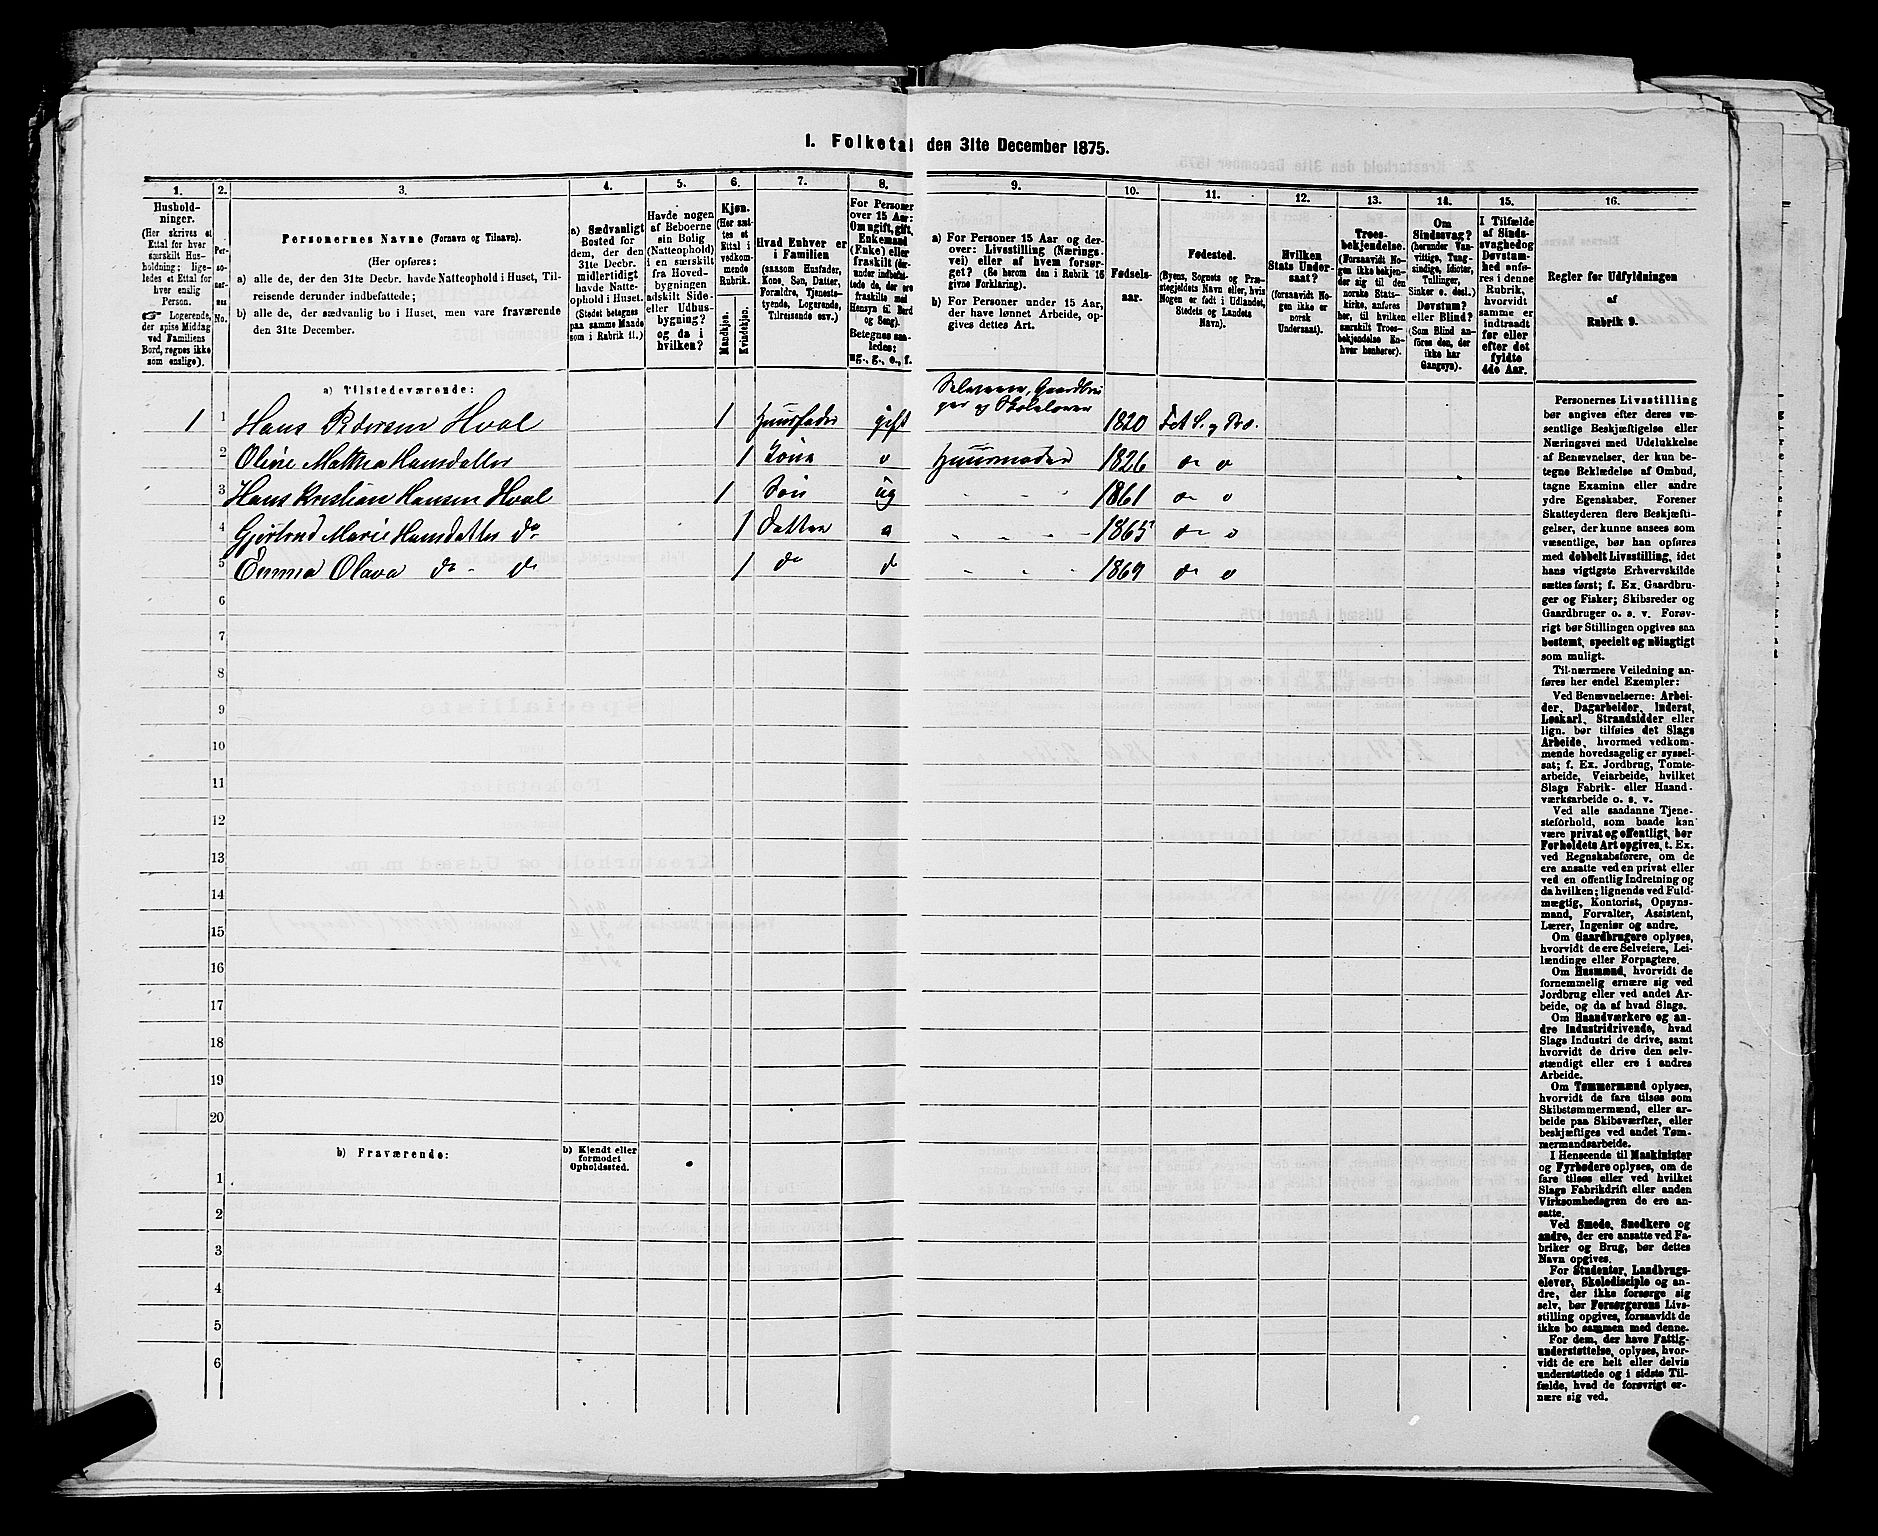 1. Folketal den 31te December 1875.
1.
2.
3.
4.
5.
6.
7.
8.
9.
10.
11.
12.
13.
14.
15.
16.
Hushold-
ninger.
(Her skrives et
Ettal for hver
særskilt Hus-
holdning; lige-
ledes et Ettal for
hver enslig
Person.
☞ Logerende,
der spise Middag
ved Familiens
Bord, regnes ikke
som enslige).
Per-
so-
ner-
nes
No.
Personernes Navne (Fornavn og Tilnavn).
(Her opføres:
a) alle de, der den 31te Decbr. havde Natteophold i Huset, Til-
reisende derunder indbefattede;
b) alle de, der sædvanlig bo i Huset, men vare fraværende
den 31te December.
a) Sædvanligt
Bosted for
dem, der den
31te Decbr.
midlertidigt
havde Natte-
ophold i Huset.
(Stedet betegnes
paa samme Maade
som i Rubrik 11.)
Havde nogen
af Beboerne
sin Bolig
(Natteophold)
i en særskilt
fra Hoved-
bygningen
adskilt Side-
eller Udhus-
bygning?
og da i
hvilken?
Kjøn.
(Her sæt-
tes et
Ettal i
vedkom-
mende
Rubrik.
Mandkjøn.
Kvindekjøn.
Hvad Enhver er
i Familien
(saasom Husfader,
Kone, Søn, Datter,
Forældre, Tjeneste-
tyende, Logerende,
Tilreisende osv.)
For Personer
over 15 Aar:
Om ugift, gift,
Enkemand
(Enke) eller
fraskilt (der-
under indbefat-
tede de, der ere
fraskilte med
Hensyn til Bord
og Seng).
Betegnes saa-
ledes:
ug., g., e., f.
a) For Personer 15 Aar og der-
over: Livsstilling (Nærings-
vei) eller af hvem forsør-
get? (Se herom den i Rubrik 16
givne Forklaring).
b) For Personer under 15 Aar,
der have lønnet Arbeide, op-
gives dettes Art.
Fødsels-
aar.
Fødested.
(Byens, Sognets og Præ-
stegjeldets Navn eller, hvis
Nogen er født i Udlandet,
Stedets og Landets
Navn).
Hvilken
Stats Under-
saat?
(forsaavidt No-
gen ikke er
norsk
Undersaat).
Troes-
bekjendelse.
(Forsaavidt No-
gen ikke bekjen-
der sig til den
norske Stats-
kirke, anføres
her, til hvilken
særskilt Troes-
bekjendelse En-
hver henhører).
Om
Sindssvag?
(herunder Van-
vittige, Tung-
sindige, Idioter,
Tullinger,
Sinker o. desl.)
Døvstum?
eller Blind?
(Som Blind an-
føres den, der
ikke har
Gangsyn).
I Tilfælde
af Sinds-
svaghed og
Døvstum-
hed anfø-
res i denne
Rubrik,
hvorvidt
samme er
indtraadt
før eller
efter det
fyldte
4de Aar.
Regler for Udfyldningen
af
Rubrik 9.
a) Tilstedeværende:
1 1 Hans Pedersen Hval 1 Huusfader gift Selveier, Gaardbru
ger og Skolelærer 1820 Fet S. og Præ.
2 Oline Mathea Hansdatter 1 Kone o Huusmoder 1826 do o
3 Hans Kristian Hansen Hval 1 Søn ug - - - 1861 do o
4 Gjertrud Marie Hansdatter do 1 Datter o - - - - 1865 do o
5 Emma Olava do - do 1 do do - - - 1869 do o
6
7
8
9
10
11
12
13
14
15
16
17
18
19
20
b) Fraværende:
b) Kjendt eller
formodet
Opholdssted.
1
2
3
4
5
6
Personernes Livsstilling
bør angives efter deres væ-
sentlige Beskjæftigelse eller
Næringsvei med Udelukkelse
af Benævnelser, der kun be-
tegne Beklædelse af Ombud,
tagne Examina eller andre
ydre Egenskaber. Forener
Skatteyderen flere Beskjæfti-
gelser, der kunne ansees som
væsentlige, bør han opføres
med dobbelt Livsstilling, idet
hans vigtigste Erhvervskilde
sættes først; f. Ex. Gaardbru-
ger og Fisker; Skibsreder og
Gaardbruger o. s. v. Forøv-
rigt bør Stillingen opgives saa
bestemt, specielt og nöiagtigt
som muligt.
Til nærmere Veiledning an-
føres her endel Exempler:
Ved Benævnelserne: Arbei-
der, Dagarbeider, Inderst,
Løskarl, Strandsidder eller
lign. bør tilføies det Slags
Arbeide, hvormed vedkom-
mende hovedsagelig er syssel-
sat; f. Ex. Jordbrug, Tomte-
arbeide, Veiarbeide, hvilket
Slags Fabrik- eller Haand-
værksarbeide o. s. v.
Ved alle saadanne Tjene-
steforhold, som baade kan
være privat og offentligt, bør
Forholdets Art opgives, t. Ex.
ved Regnskabsførere, om de
ere ansatte ved en privat eller
ved en offentlig Indretning og
da hvilken; lignende ved Fuld-
mægtig, Kontorist, Opsyns-
mand, Forvalter, Assistent,
Lærer, Ingeniør og andre.
Om Gaardbrugere oplyses,
hvorvidt de ere Selveiere, Lei-
lændinge eller Forpagtere.
Om Husmænd, hvorvidt de
fornemmelig ernære sig ved
Jordbrug eller ved andet Ar-
beide, og da af hvad Slags.
Om Haandværkere og an-
dre Industridrivende, hvad
Slags Industri de drive, samt
hvorvidt de drive den selv-
stændigt eller ere i andres
Arbeide.
Om Tømmermænd oplyses,
hvorvidt de fare tilsøs som
Skibstømmermænd, eller ar-
beide paa Skibsværfter, eller
beskjæftiges ved andet Tøm-
mermandsarbeide.
I Henseende til Maskinister
og Fyrbødere oplyses, om de
fare tilsøs eller ved hvilket
Slags Fabrikdrift eller anden
Virksomhedsgren de ere an-
satte.
Ved Smede, Snedkere og
andre, der ere ansatte ved Fa-
briker og Brug, bør dettes
Navn opgives.
For Studenter, Landbrugs-
elever, Skoledisciple og an-
dre, der ikke forsørge sig
selv, bør Forsørgerens Livs-
stilling opgives, forsaavidt de
ikke bo sammen med denne.
For dem, der have Fattig-
understøttelse, oplyses, hvor-
vidt de ere helt eller delvis
understøttede og i sidste Til-
fælde, hvad de forøvrigt er-
nære sig ved.